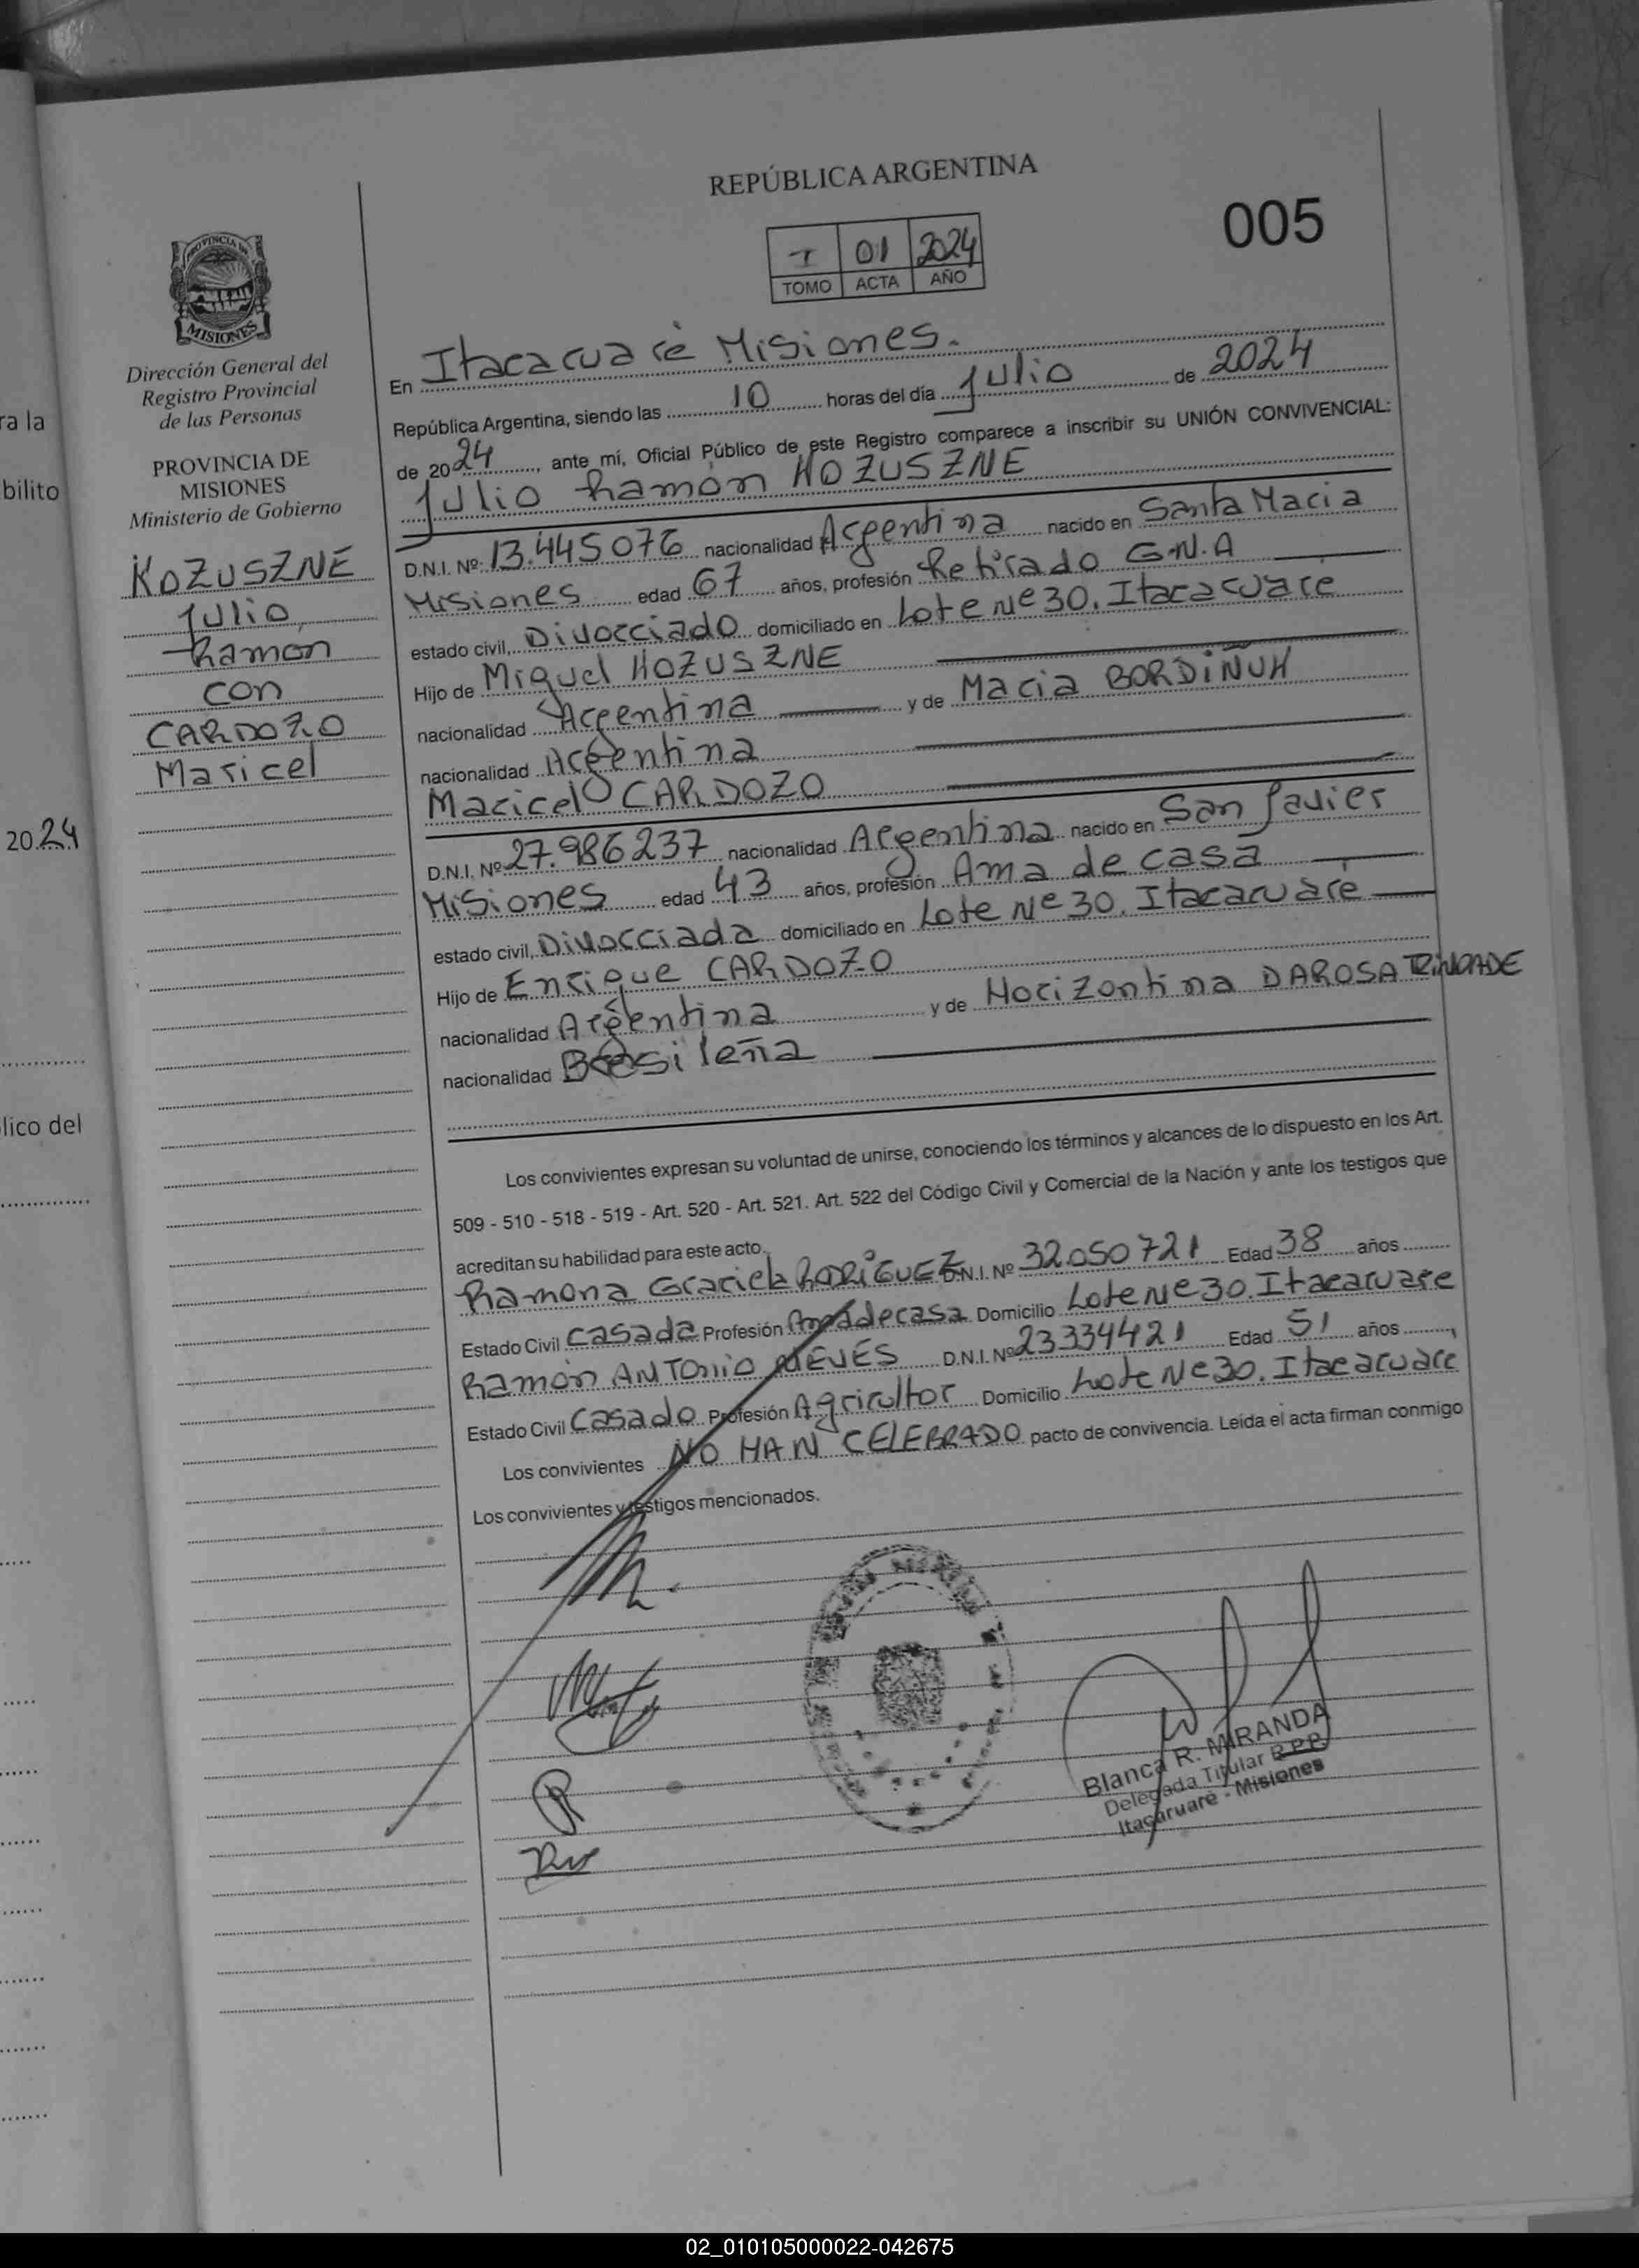 REPÚBLICA ARGENTINA
005
I 01 2024
TOMO ACTA AÑO
PROVINCIA DE
MISIONES
Dirección General del
Registro Provincial
de las Personas
PROVINCIA DE
MISIONES
Ministerio de Gobierno
KOZUSZNE
Julio
Ramon
con
CARDOZO
Maricel
En Itacaruarè Misiones.
República Argentina, siendo las 10 horas del día Julio de 2024
de 2024, ante mí, Oficial Público de este Registro comparece a inscribir su UNIÓN CONVIVENCIAL:
Julio Ramón KOZUSZNE
D.N.I. Nº: 13.445076 nacionalidad Argentina nacido en Santa Maria
Misiones edad 67 años, profesión Retirado G.N.A
estado civil, Divorciado domiciliado en Lote Nº 30. Itacaruaré
Hijo de Miguel KOZUSZNE
nacionalidad Argentina y de Maria BORDIÑUK
nacionalidad Argentina
Maricel CARDOZO
D.N.I. Nº 27.986237 nacionalidad Argentina nacido en San Javier
Misiones edad 43 años, profesión Ama de casa
estado civil, Divorciada domiciliado en Lote Nº 30. Itacaruaré
Hijo de Enrique CARDOZO
nacionalidad Argentina y de Horizontina DAROSA TRINDADE
nacionalidad Brasileña
Los convivientes expresan su voluntad de unirse, conociendo los términos y alcances de lo dispuesto en los Art.
509 - 510 - 518 - 519 - Art. 520 - Art. 521. Art. 522 del Código Civil y Comercial de la Nación y ante los testigos que
acreditan su habilidad para este acto.
Ramona Graciela RODRIGUEZ D.N.I. Nº 32.050721 Edad 38 años
Estado Civil Casada Profesión Ama de casa Domicilio Lote Nº 30. Itacaruare
Ramón ANTONIO NIEVES D.N.I. Nº 23334421 Edad 51 años
Estado Civil Casado Profesión Agricultor Domicilio Lote Nº 30. Itacaruare
Los convivientes NO HAN CELEBRADO pacto de convivencia. Leída el acta firman conmigo
Los convivientes y testigos mencionados.
Blanca R. MIRANDA
Delegada Titular R.P.P.
Itacaruaré - Misiones
ra la
bilito
2024
lico del
02_010105000022-042675